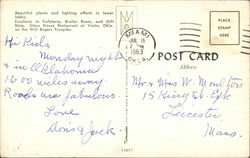 Beautiful plants and lighting effects in lower lobby.
Escalator to Cafeteria, Broiler Room, and Gift
Shop. Glass House Restaurant at Vinita, Okla.
on the Will Rogers Turnpike.
MIAMI
JUL 16
1963
OKLA.
POST CARD
Address
Hi Kids
Monday night
& in Oklahoma
1600 miles away
Roads are fabulous.
Love
Doris & Jack
Mr & Mrs W. Moulton
15 King St
Leicester
Mass.